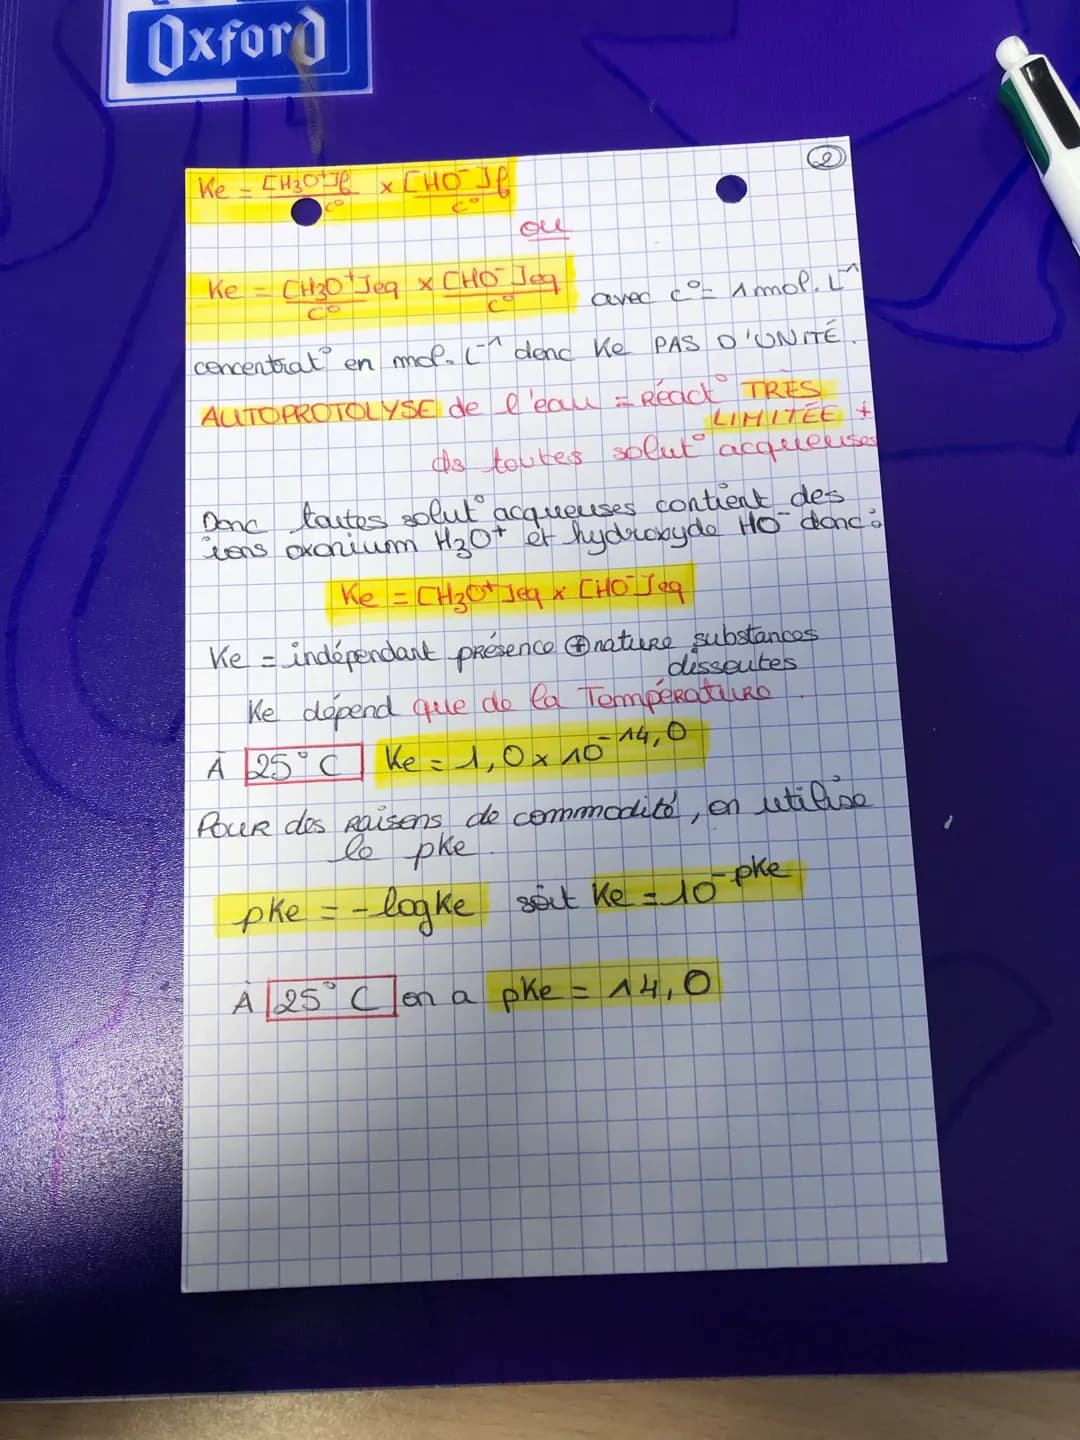 Oxford
②
Ke = [H3O+]f/c° × [HO-]f/c°
ou
Ke = [H3O+]eq/c° × [HO-]eq/c° avec c° = 1 mol.L-1
concentrat° en mol.L-1 donc Ke PAS D'UNITÉ.
AUTOPROTOLYSE de l'eau = Réact° TRÈS
LIMITÉE +
ds toutes solut° acqueuses
Donc toutes solut° acqueuses contient des
ions oxonium H3O+ et hydroxyde HO- donc :
Ke = [H3O+]eq × [HO-]eq
Ke = indépendant présence ⊕ nature substances
dissoutes
Ke dépend que de la Température.
À 25°C Ke = 1,0 × 10-14,0
Pour des raisons de commodité, on utilise
le pKe.
pKe = - log Ke soit Ke = 10-pKe
À 25°C on a pKe = 14,0